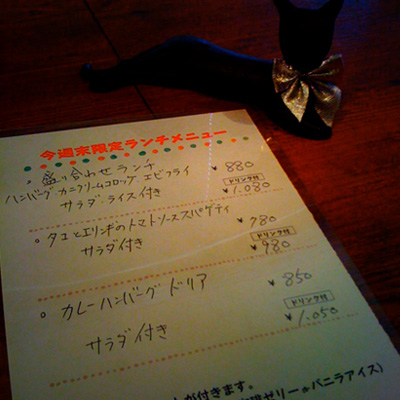 今週末限定ランチメニュー
・盛り合わせランチ ¥880
ハンバーグ・カニクリームコロッケ エビフライ ドリンク付
サラダ・ライス付き ¥1.080
○ タコとエリンギのトマトソーススパゲティ ¥780
サラダ付き ドリンク付 ¥980
○ カレーハンバーグドリア ¥850
サラダ付き ドリンク付 ¥1.050
が付きます。
ゼリー or バニラアイス)